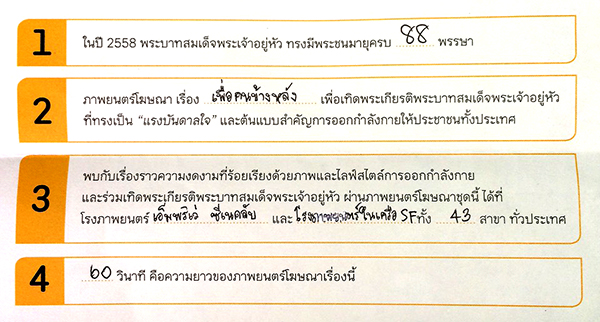 1
ในปี 2558 พระบาทสมเด็จพระเจ้าอยู่หัว ทรงมีพระชนมายุครบ 88 พรรษา
2
ภาพยนตร์โฆษณา เรื่อง เพื่อคนข้างหลัง เพื่อเทิดพระเกียรติพระบาทสมเด็จพระเจ้าอยู่หัว
ที่ทรงเป็น “แรงบันดาลใจ” และต้นแบบสำคัญการออกกำลังกายให้ประชาชนทั้งประเทศ
3
พบกับเรื่องราวความงดงามที่ร้อยเรียงด้วยภาพและไลฟ์สไตล์การออกกำลังกาย
และร่วมเทิดพระเกียรติพระบาทสมเด็จพระเจ้าอยู่หัว ผ่านภาพยนตร์โฆษณาชุดนี้ ได้ที่
โรงภาพยนตร์ เอ็มพริเว่ ซีเนคลับ และ โรงภาพยนตร์ในเครือ SF ทั้ง 43 สาขา ทั่วประเทศ
4
60 วินาที คือความยาวของภาพยนตร์โฆษณาเรื่องนี้